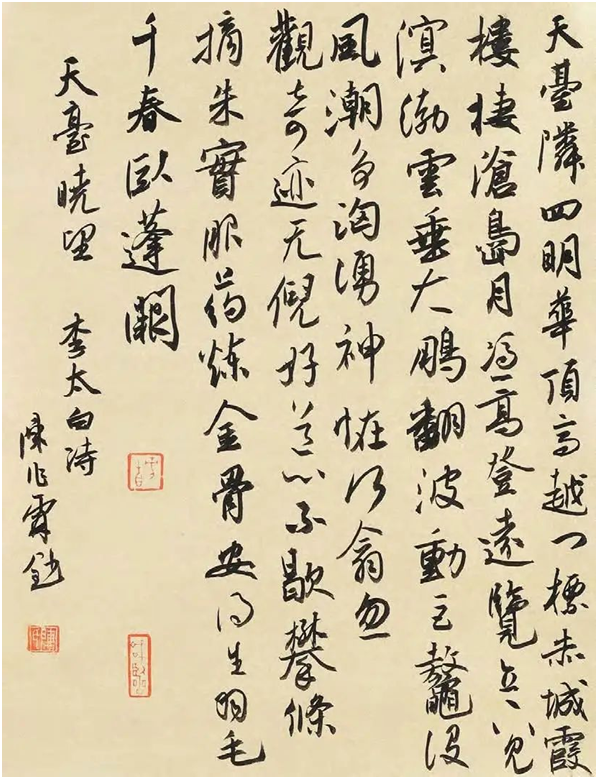 天臺隣四明華頂高越门標赤城霞
樓棲滄島月馮高登遠覽直下見
溟渤雲垂大鵬翻波動巨鼇沒
風潮争洶湧神恠何翕忽
觀奇迹无倪好道心不歇攀條
摘朱實服药煉金骨安得生羽毛
千春臥蓬闕
天臺曉望 李太白诗
陳